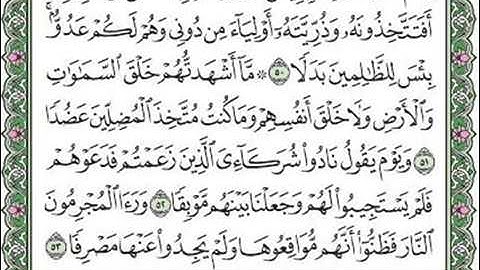 أَفَتَتَّخِذُونَهُۥ وَذُرِّيَّتَهُۥٓ أَوْلِيَآءَ مِن دُونِى وَهُمْ لَكُمْ عَدُوٌّۢ ۚ
بِئْسَ لِلظَّـٰلِمِينَ بَدَلًا ٥٠ ۞ مَّآ أَشْهَدتُّهُمْ خَلْقَ ٱلسَّمَـٰوَٰتِ
وَٱلْأَرْضِ وَلَا خَلْقَ أَنفُسِهِمْ وَمَا كُنتُ مُتَّخِذَ ٱلْمُضِلِّينَ عَضُدًا
٥١ وَيَوْمَ يَقُولُ نَادُوا۟ شُرَكَآءِىَ ٱلَّذِينَ زَعَمْتُمْ فَدَعَوْهُمْ
فَلَمْ يَسْتَجِيبُوا۟ لَهُمْ وَجَعَلْنَا بَيْنَهُم مَّوْبِقًا ٥٢ وَرَءَا ٱلْمُجْرِمُونَ
ٱلنَّارَ فَظَنُّوٓا۟ أَنَّهُم مُّوَاقِعُوهَا وَلَمْ يَجِدُوا۟ عَنْهَا مَصْرِفًا ٥٣